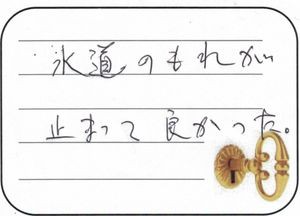 水道のもれが
止まって良かった。